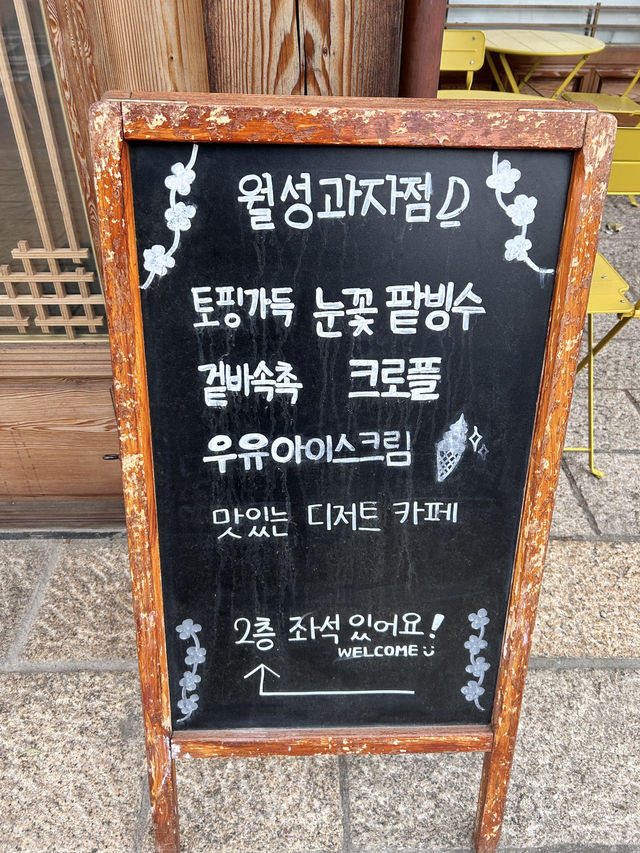 월성과자점
토핑가득 눈꽃 팥빙수
겉바속촉 크로플
우유아이스크림
맛있는 디저트 카페
2층 좌석 있어요!
WELCOME